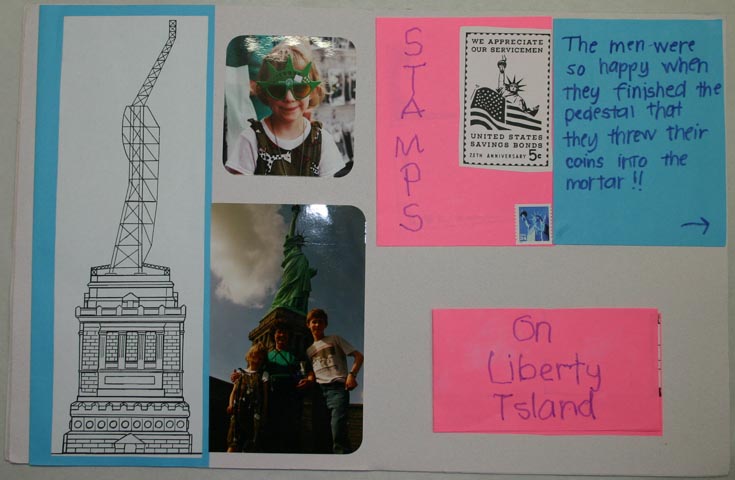 STAMPS
WE APPRECIATE
OUR SERVICEMEN
UNITED STATES
SAVINGS BONDS
25TH ANNIVERSARY 5c
The men were
so happy when
they finished the
pedestal that
they threw their
coins into the
mortar!!
On
Liberty
Island